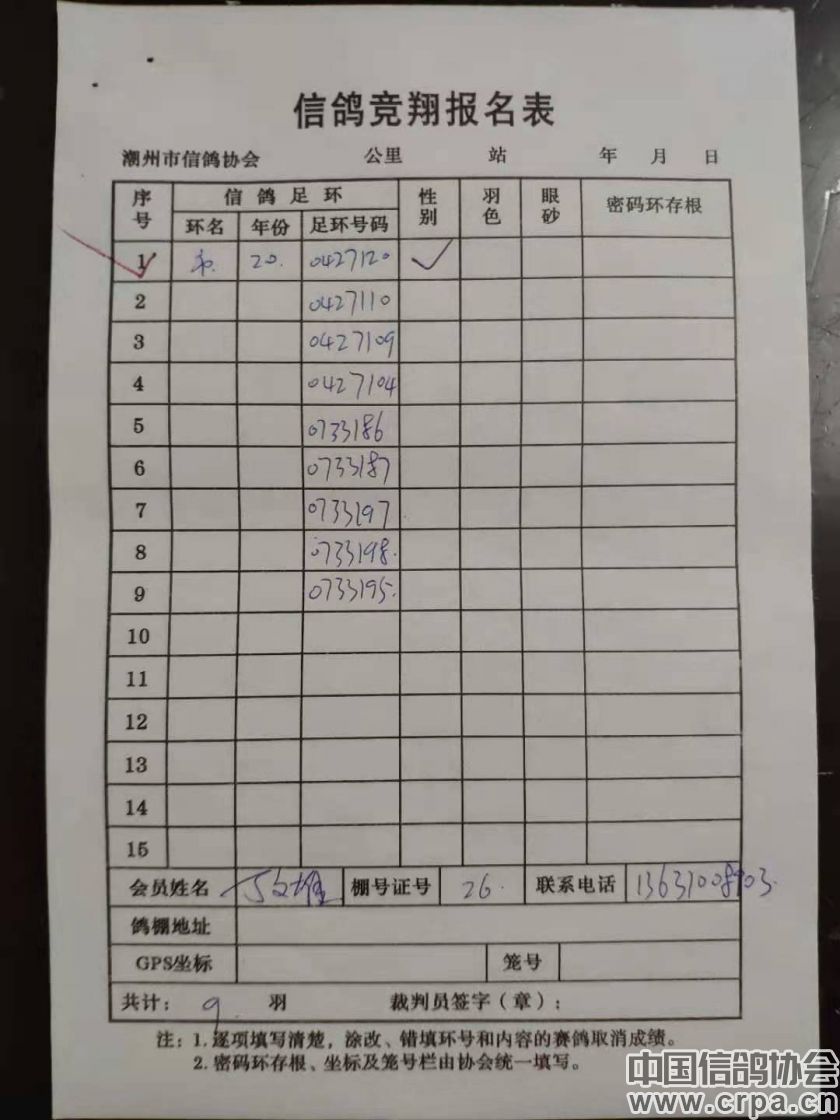 信鸽竞翔报名表
潮州市信鸽协会 公里 站 年 月 日
序号 信鸽足环 性别 羽色 眼砂 密码环存根
环名 年份 足环号码
1 20. 0427120 ✓
2 0427110
3 0427109
4 0427104
5 0733186
6 0733187
7 0733197
8 0733198.
9 0733195.
10
11
12
13
14
15
会员姓名 丁文雄 棚号证号 26. 联系电话 13631008903.
鸽棚地址
GPS坐标 笼号
共计: 9. 羽 裁判员签字(章):
注: 1.逐项填写清楚,涂改、错填环号和内容的赛鸽取消成绩。
2.密码环存根、坐标及笼号栏由协会统一填写。
中国信鸽协会
www.crpa.cn